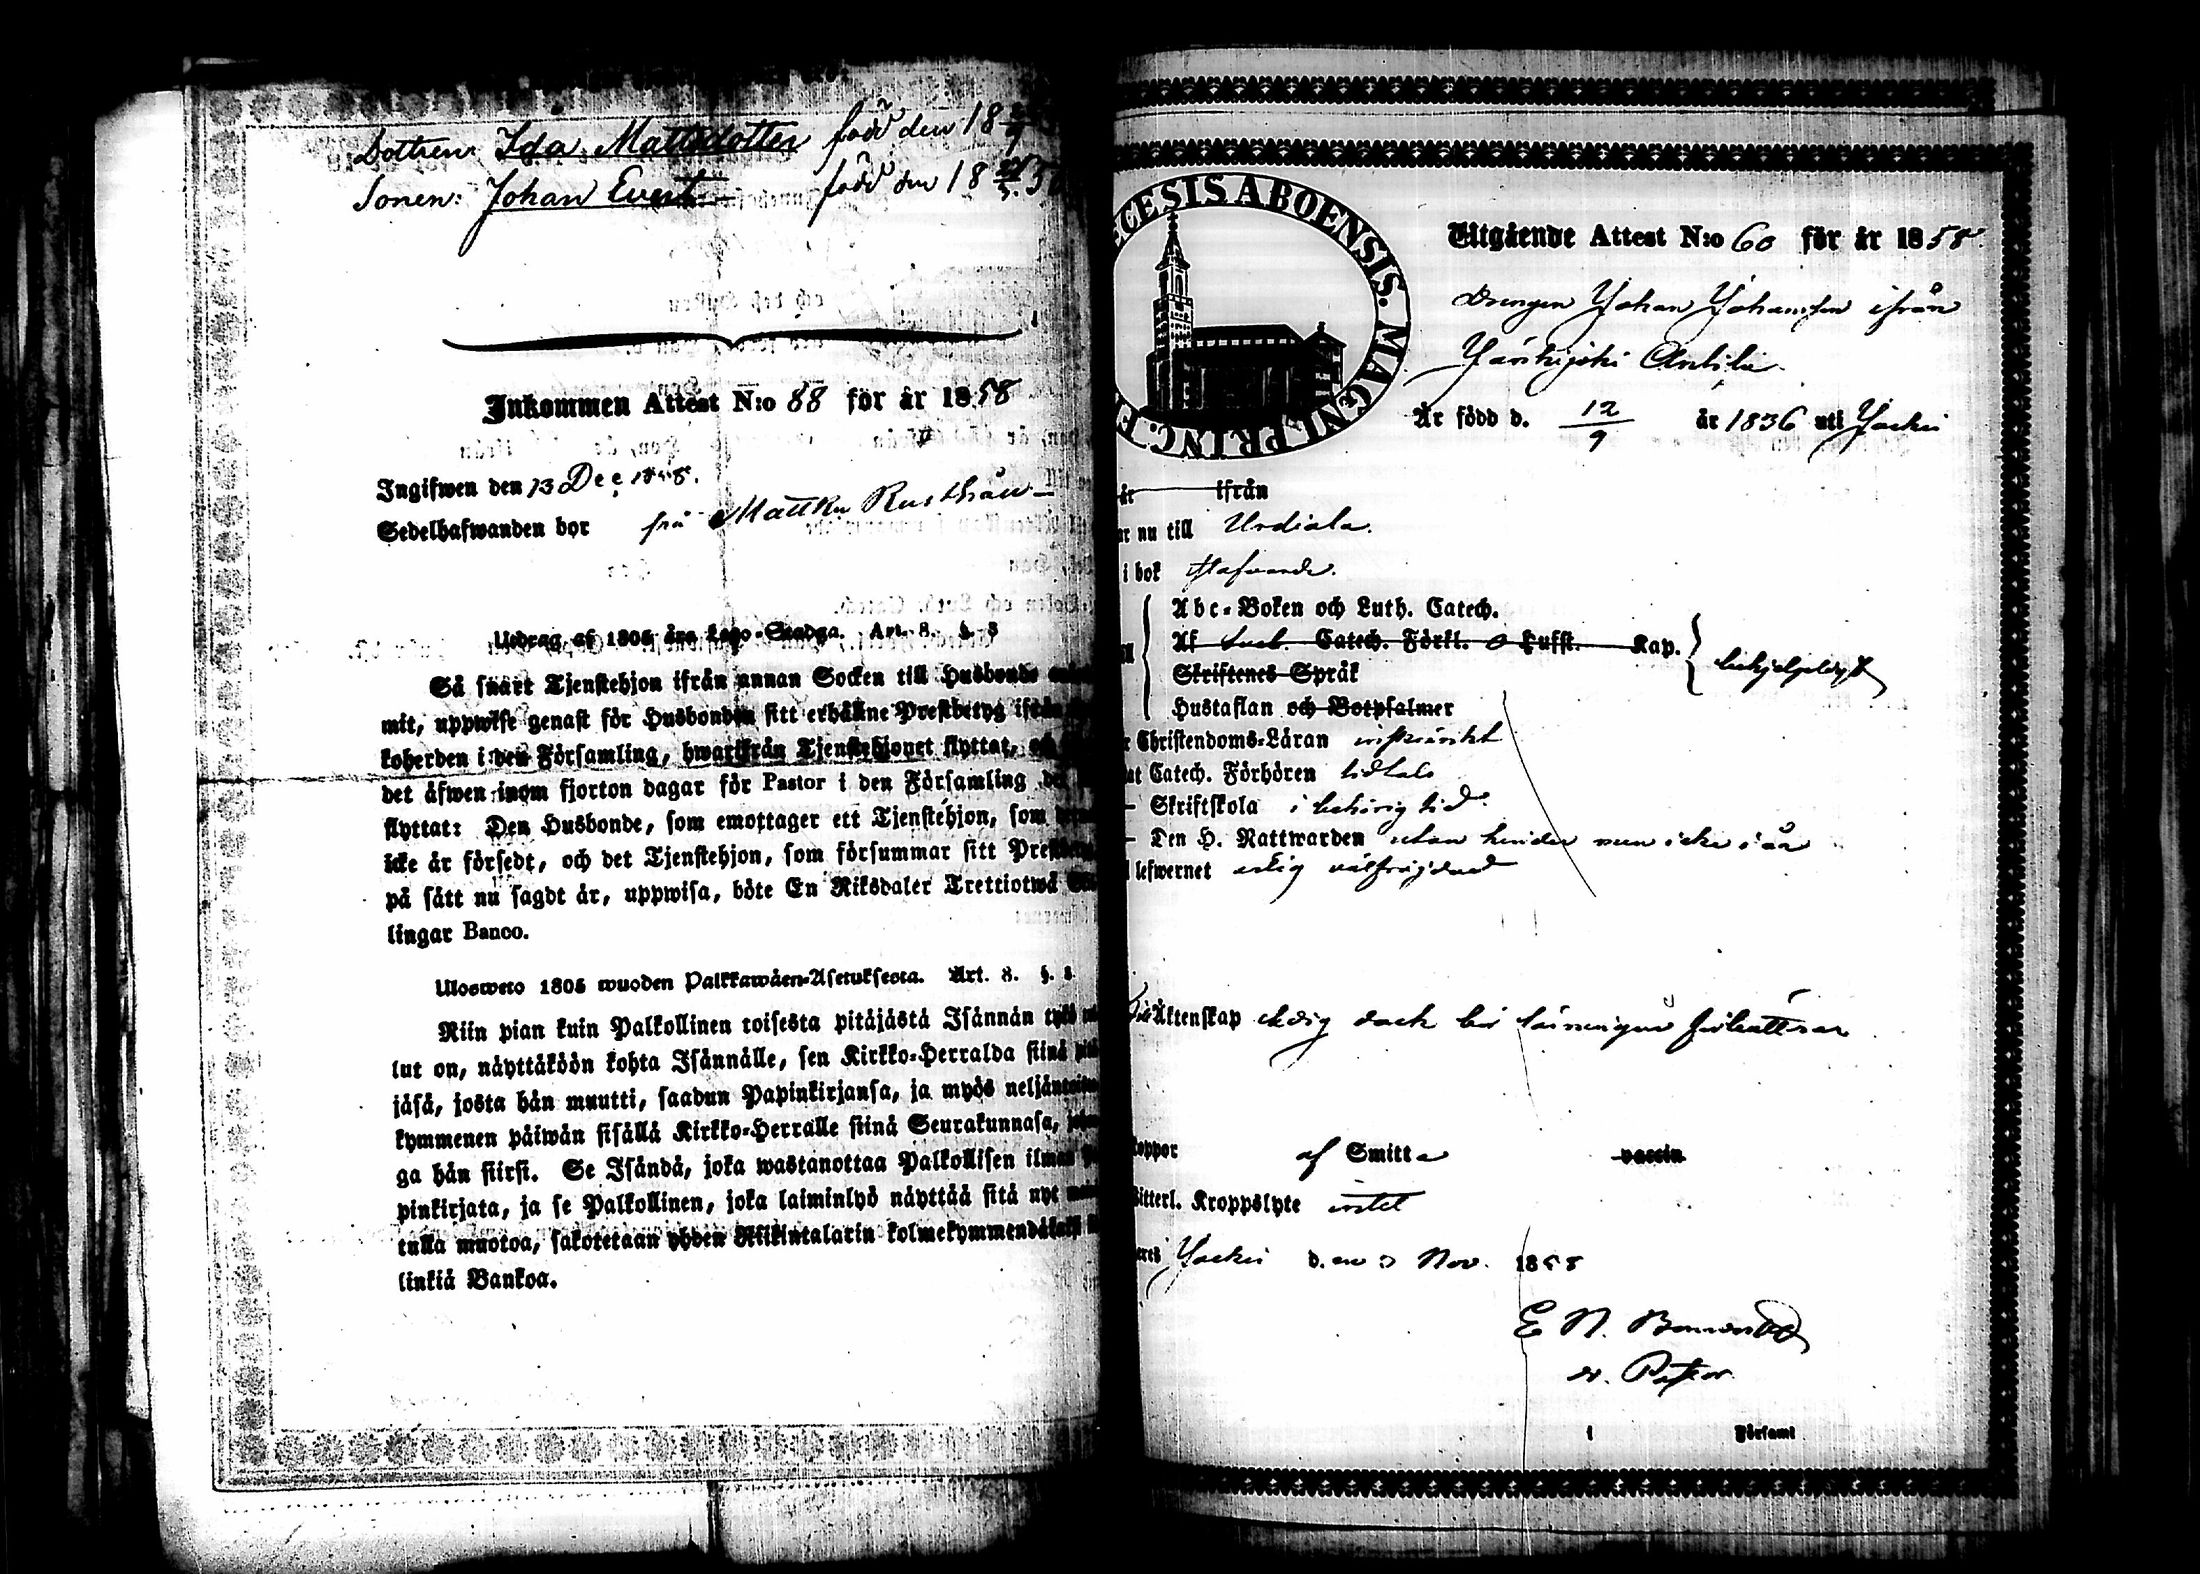 Dottren: Ida Mattsdotter född den 18
Sonen: Johan Evert född den 18
Inkommen Attest N:o 88 för år 1858
Ingifwen den 13 Dec 1858.
Sedelhafwanden bor från Rusthåll
Utdrag af 1805 års Lego-Stadga. Art. 8. §. 8
Så snart Tjenstehjon ifrån annan Socken till Husbonde
mit, uppwise genast för Husbonden sitt erhållne Prestbetyg ifrån
koherden i den Församling, hwarifrån Tjenstehjonet flyttat,
det äfwen inom fjorton dagar för Pastor i den Församling
flyttat: Den Husbonde, som emottager ett Tjenstehjon, som
icke är försedt, och det Tjenstehjon, som försummar sitt
på sätt nu sagdt är, uppwisa, böte En Riksdaler Trettiotwå
lingar Banco.
Ulosweto 1805 wuoden Palkkawäen-Asetuksesta. Art. 8. §. 8
Niin pian kuin Palkollinen toisesta pitäjästä Isännän työ
lut on, näyttäköön kohta Isännälle, sen Kirkko-Herralda siinä
jäsä, josta hän muutti, saadun Papinkirjansa, ja myös
kymmenen päiwän sisällä Kirkko-Herralle siinä Seurakunnasa,
ga hän siirsi. Se Isändä, joka wastanottaa Palkollisen ilman
pinkirjata, ja se Palkollinen, joka laiminlyö näyttää sitä nyt
tulla muotoa, sakotetaan yhden Riikintalarin
linkiä Bankoa.
ECESIS ABOENSIS. MAGNI PRINC. F
Utgående Attest N:o 60 för år 1858.
Drengen Johan Johansson ifrån
Anttila
Är född d. 12/9 år 1836 uti Jockis
år ifrån
ar nu till Urdiala.
i bok stafwande.
Abc-Boken och Luth. Catech.
Af Luth. Catech. Förkl. o Kap.
Skriftenes Språk
Hustaflan och Botpsalmer
Christendoms-Läran inskränkt
at Catech. Förhören tidtals
Skriftskola i behörig tid.
Den H. Nattwarden utan hinder men icke i år
lefwernet
Äktenskap ledig dock bör läsningen förbättras
koppor af Smitta vaccin
Witterl. Kroppslyte intet
Jockis d. en 3 Nov. 1858
E N.
v. Pastor
1 Församl